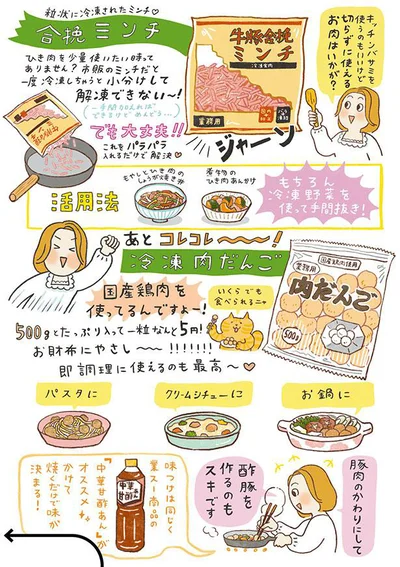 粒状に冷凍されたミンチ♡
合挽ミンチ
ひき肉を少量使いたい時って
ありません？市販のミンチだと
一度冷凍しちゃうと小分けして
解凍できない〜！
でも大丈夫!!
これをパラパラ
入れるだけで解決♡
牛豚合挽
ミンチ
業務用
ジャーン
キッチンバサミを
使うのもいいけど
切らずに使える
お肉はいかが？
活用法
もやしとひき肉の
しょうが焼き丼
煮物の
ひき肉あんかけ
もちろん
冷凍野菜を
使って手間抜き！
あとコレコレ〜〜！
冷凍肉だんご
国産鶏肉を
使ってるんですよー！
いくらでも
食べられるニャ
500gとたっぷり入って一粒なんと5円！
お財布にやさし〜〜!!!!!!!
即調理に使えるのも最高〜♡
国産鶏肉使用
業務用
肉だんご
500g
パスタに
クリームシチューに
お鍋に
豚肉のかわりにして
酢豚を
作るのも
スキです
味つけは同じく
業スー商品の
「中華甘酢あん」が
オススメ
かけて
焼くだけで味が
決まる！
中華
甘酢あん